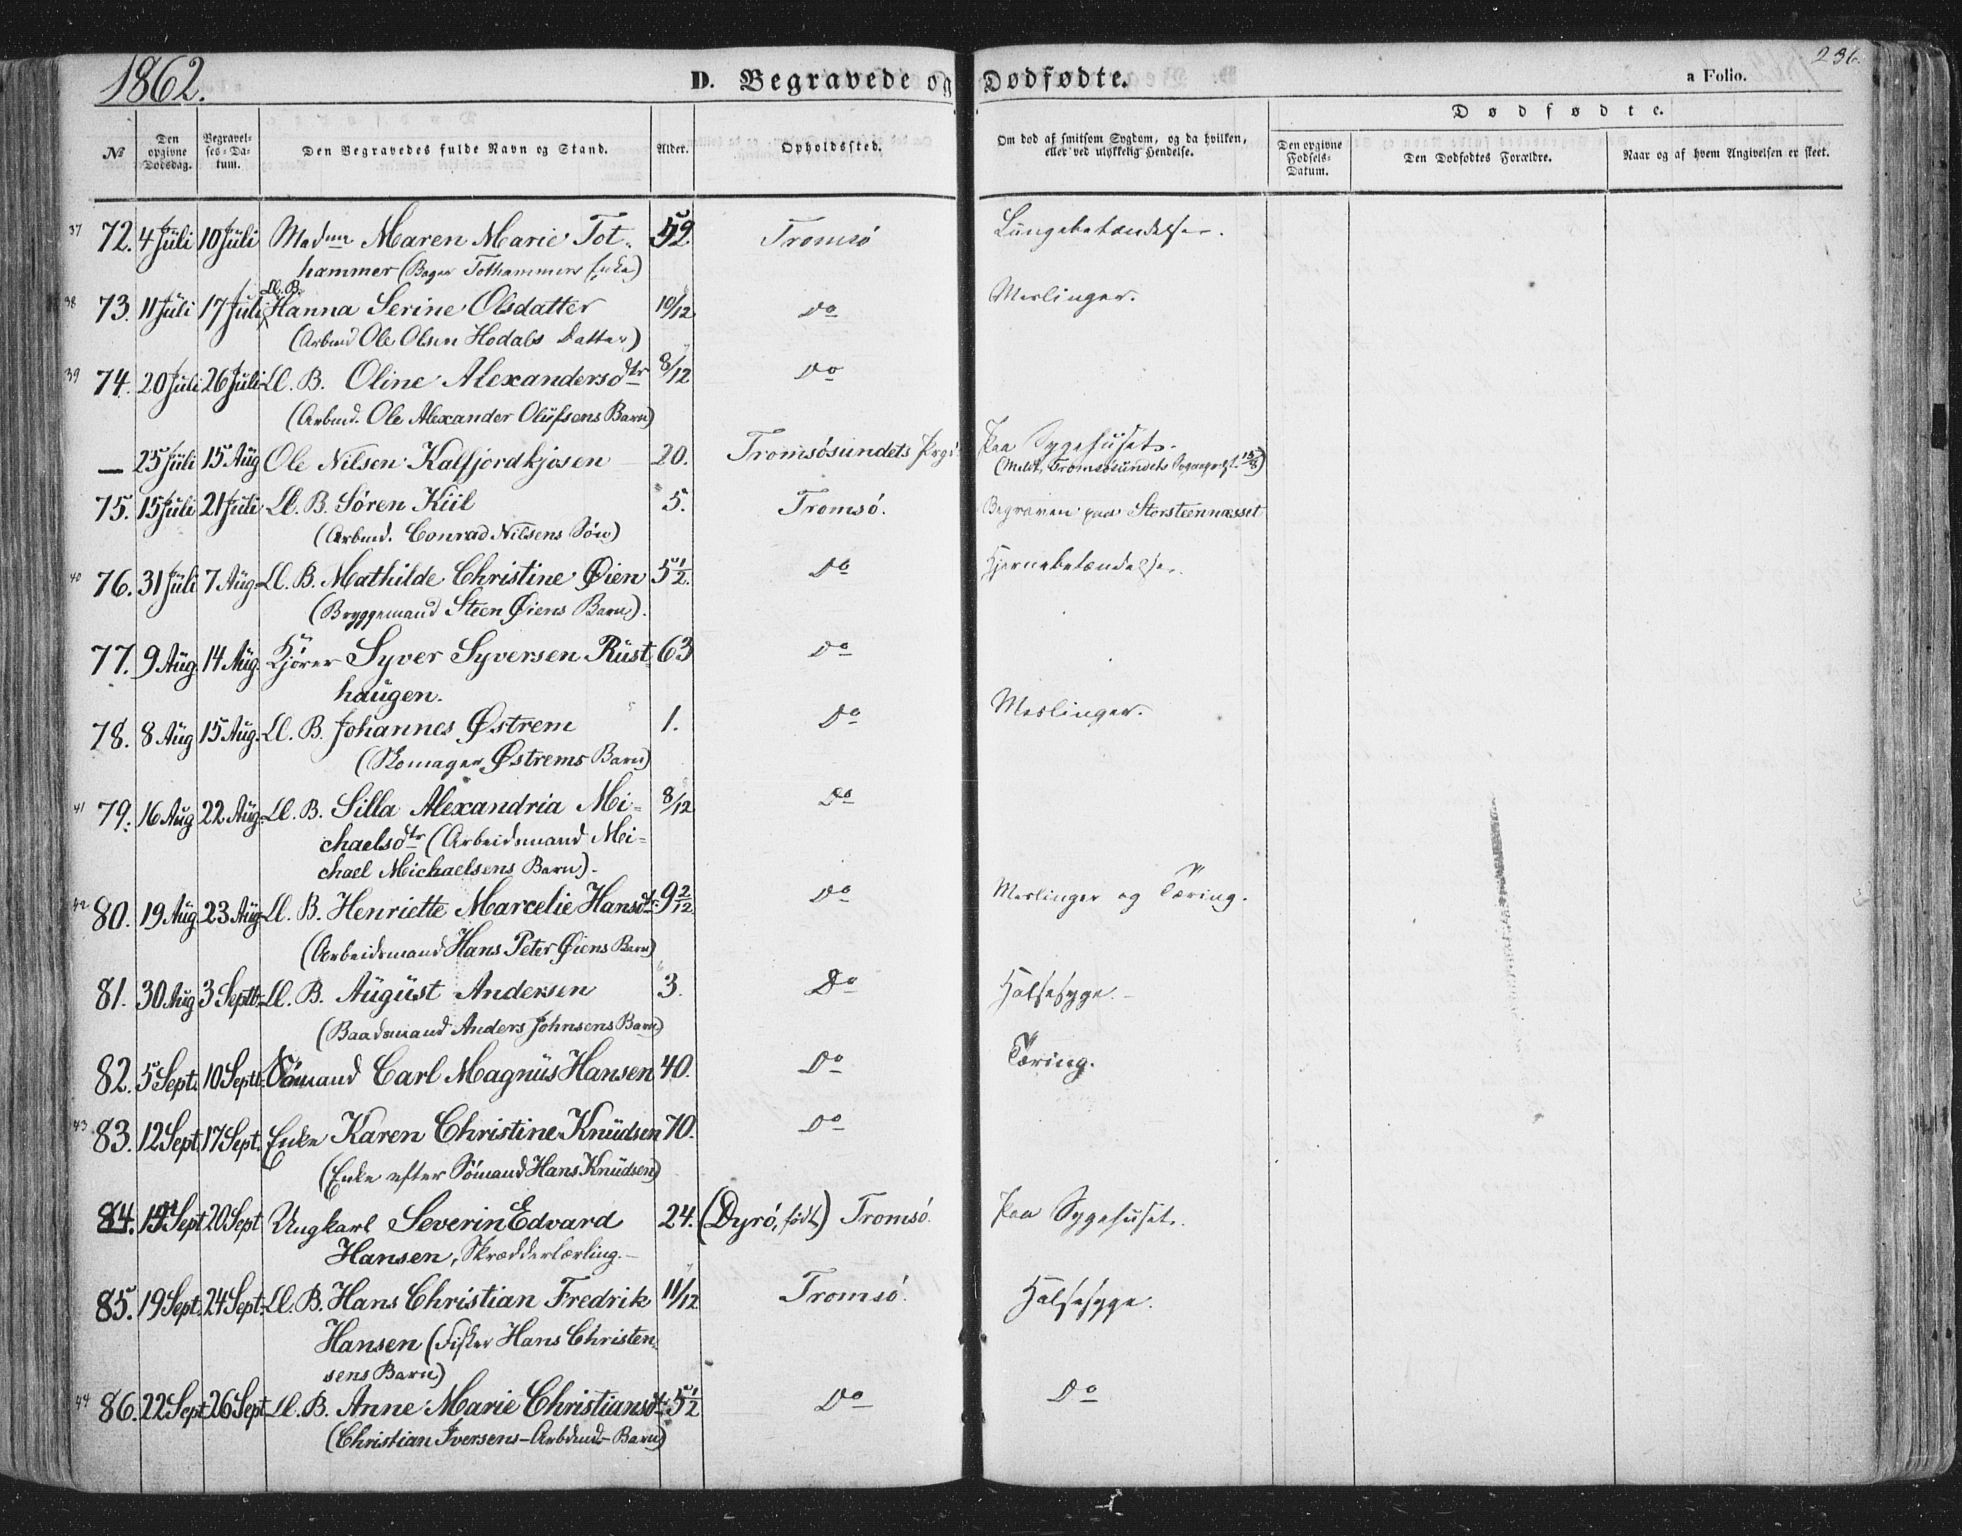 1862.
D. Begravede og Dødfødte.
a Folio.
236.
Dødfødte.
№
Den opgivne Dødsdag.
Begravelses-Datum.
Den Begravedes fulde Navn og Stand.
Alder.
Opholdssted.
Om død af smitsom Sygdom, og da hvilken, eller ved ulykkelig Hendelse.
Den opgivne Fødsels-Datum.
Den Dødfødtes Forældre.
Naar og af hvem Angivelsen er skeet.
37 72. 4 Juli 10 Juli Madme Maren Marie Tot- 52 Tromsö Lungebetændelse.
hammer (Bager Tothammers Enke)
Ll. B.
38 73. 11 Juli 17 Juli Hanna Serine Olsdatter 10/12 Do Meslinger.
(Arbmd Ole Olsen Hodals Datter)
39 74. 20 Juli 26 Juli Ll. B. Oline Alexandersdtr 8/12 Do
(Arbmd. Ole Alexander Olufsens Barn)
— 25 Juli 15 Aug Ole Nilsen Kalfjordkjosen 20. Tromsösundets Prgj. Paa Sygehuset.
(Meldt Tromsösundets Sogneprest 15/8)
75. 15 Juli 21 Juli Ll. B. Søren Kiil 5. Tromsö. Begraven paa Storsteennæsset
(Arbmd. Conrad Nilsens Sön)
40 76. 31 Juli 7 Aug. Ll. B. Mathilde Christine Øien 5 1/2. Do Hjernebetændelse.
(Bryggemand Steen Øiens Barn).
77. 9 Aug 14 Aug. Kjører Syver Syversen Rust- 63 Do
haugen.
78. 8 Aug 15 Aug. Ll. B. Johannes Østrem 1. Do Meslinger.
(Skomager Østrems Barn)
41 79. 16 Aug 22 Aug. Ll. B. Silla Alexandria Mi- 8/12 Do
chaelsdtr (Arbeidsmand Mi-
chael Michaelsens Barn).
42 80. 19 Aug 23 Aug. Ll. B. Henriette Marcelie Hansdtr. 9 2/12 Do Meslinger og Tæring.
(Arbeidsmand Hans Peter Øiens Barn)
81. 30 Aug 3 Septb. Ll. B. August Andersen 3. Do Halsesyge.
(Baadsmand Anders Johnsens Barn)
82. 5 Sept. 10 Septb. Sömand Carl Magnus Hansen 40. Do Tæring.
43 83. 12 Sept. 17 Sept. Enke Karen Christine Knudsen 70. Do
(Enke efter Sömand Hans Knudsen)
84. 14 Sept 20 Sept Ungkarl Severin Edvard 24. (Dyrö, født) Tromsö. Paa Sygehuset.
Hansen, Skrædderlærling.
85. 19 Sept. 24 Sept. Ll. B. Hans Christian Fredrik 11/12 Tromsö. Halsesyge.
Hansen (Fisker Hans Christen-
sens Barn)
44 86. 22 Sept 26 Sept Ll. B. Anne Marie Christiansdtr. 5 1/2 Do Do
(Christian Iversens – Arbdmd – Barn)